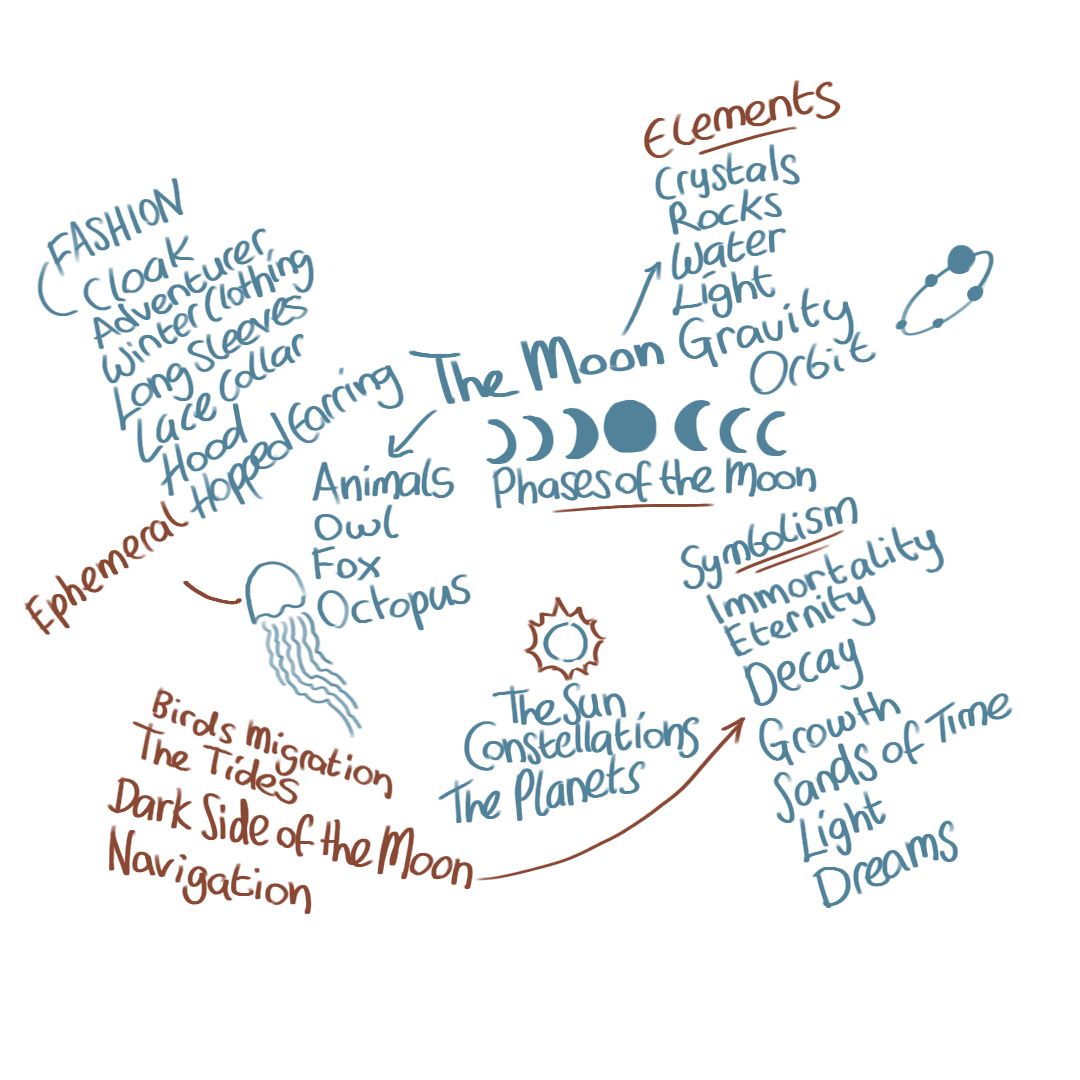 Elements
Crystals
Rocks
Water
Light
Gravity
Orbit
FASHION
Cloak
Adventurer
Winter Clothing
Long Sleeves
Lace Collar
Hood
Hopped Earring
The Moon
Phases of the Moon
Animals
Owl
Fox
Octopus
Ephemeral
Symbolism
Immortality
Eternity
Decay
Growth
Sands of Time
Light
Dreams
The Sun
Constellations
The Planets
Birds Migration
The Tides
Dark Side of the Moon
Navigation